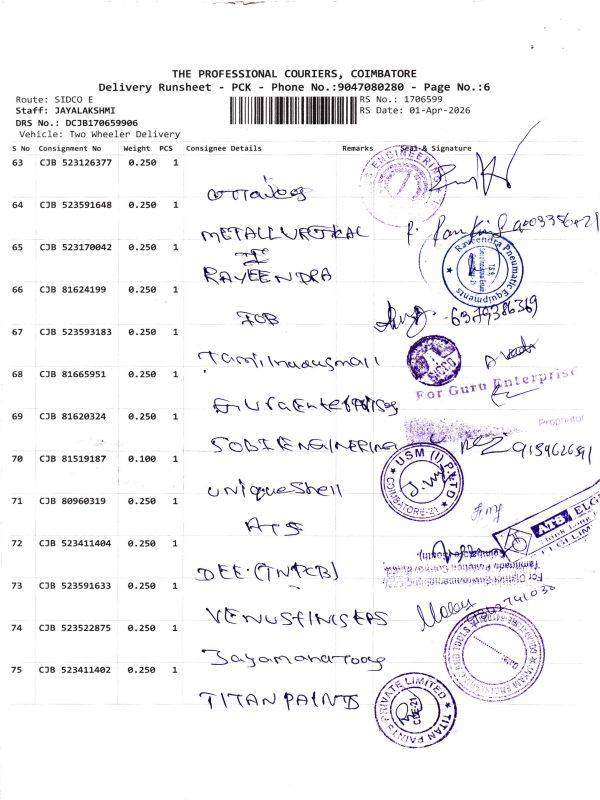 THE PROFESSIONAL COURIERS, COIMBATORE
Delivery Runsheet - PCK - Phone No.:9047080280 - Page No.:6
Route: SIDCO E RS No.: 1706599
Staff: JAYALAKSHMI RS Date: 01-Apr-2026
DRS No.: DCJB170659906
Vehicle: Two Wheeler Delivery
S No Consignment No Weight PCS Consignee Details Remarks Seal & Signature
63 CJB 523126377 0.250 1
ENGINEERING
64 CJB 523591648 0.250 1
METALLURGICAL
65 CJB 523170042 0.250 1
RAVEENDRA
Raveendra Pneumatic Equipments
66 CJB 81624199 0.250 1
IOB 6379386369
67 CJB 523593183 0.250 1
Tamilnadusmall
SIDCO
68 CJB 81665951 0.250 1
For Guru Enterprise
GuruEnterprises
69 CJB 81620324 0.250 1
Proprietor
SOBIENGINEERING 9159626591
70 CJB 81519187 0.100 1
USM (I) P. LTD
COIMBATORE-21
uniqueshell
71 CJB 80960319 0.250 1
ATS
ATS ELGI
72 CJB 523411404 0.250 1
DEE.(TNPCB)
73 CJB 523591633 0.250 1
74 CJB 523522875 0.250 1
75 CJB 523411402 0.250 1
TITAN PAINTS
TITAN PAINTS PRIVATE LIMITED
CBE-21